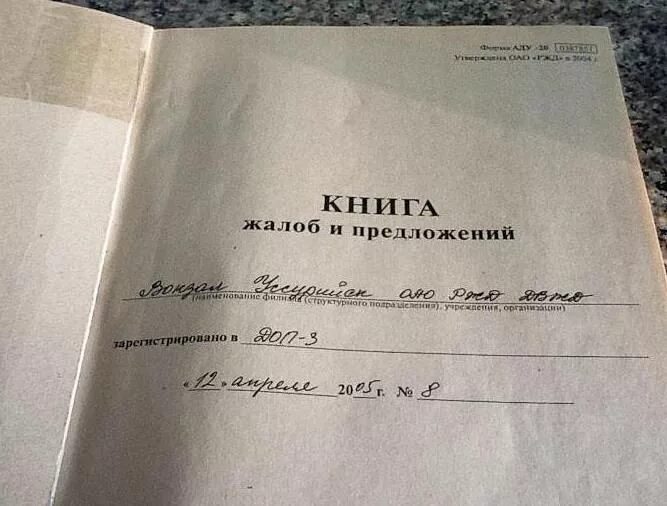 Форма АДУ -20 0387801
Утверждена ОАО «РЖД» в 2004 г.
КНИГА
жалоб и предложений
Вокзал Уссурийск ОАО РЖД ДВЖД
(наименование филиала (структурного подразделения), учреждения, организации)
зарегистрировано в ДОП-3
«12» апреля 2005 г. № 8